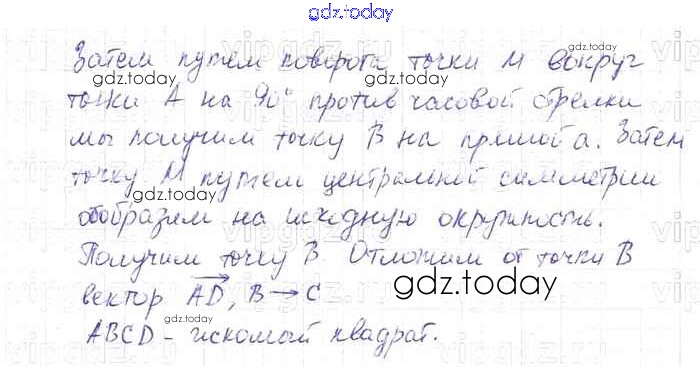 gdz.today
Затем путем поворота точки М вокруг
точки А на 90° против часовой стрелки
мы получим точку В на прямой а. Затем
точку М путем центральной симметрии
отобразим на исходную окружность.
Получим точку В. Отложим от точки В
вектор AD, B → C
ABCD - искомый квадрат.
gdz.today
gdz.today
gdz.today
gdz.today
gdz.today
gdz.today